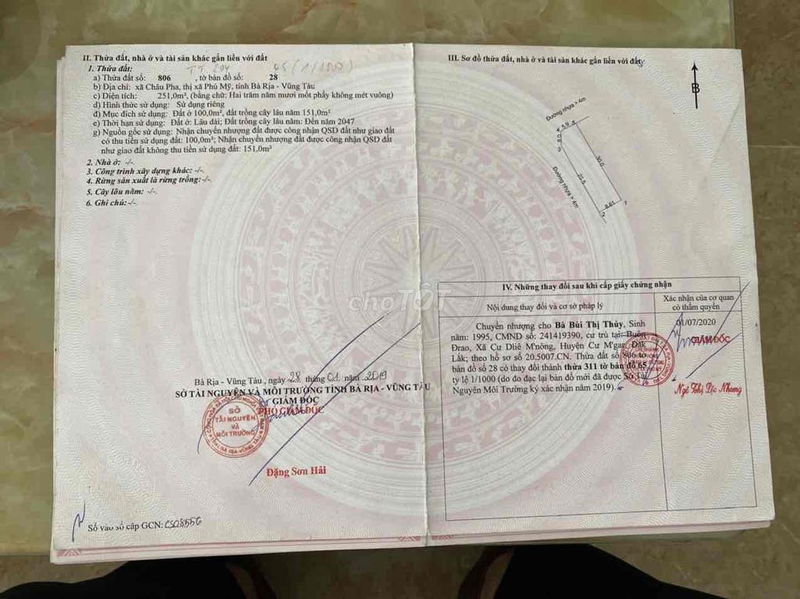 II. Thửa đất, nhà ở và tài sản khác gắn liền với đất
1. Thửa đất:
a) Thửa đất số: 806 , tờ bản đồ số: 28
b) Địa chỉ: xã Châu Pha, thị xã Phú Mỹ, tỉnh Bà Rịa - Vũng Tàu
c) Diện tích: 251,0m², (bằng chữ: Hai trăm năm mươi mốt phẩy không mét vuông)
d) Hình thức sử dụng: Sử dụng riêng
đ) Mục đích sử dụng: Đất ở 100,0m², đất trồng cây lâu năm 151,0m²
e) Thời hạn sử dụng: Đất ở: Lâu dài; Đất trồng cây lâu năm: Đến năm 2047
g) Nguồn gốc sử dụng: Nhận chuyển nhượng đất được công nhận QSD đất như giao đất
có thu tiền sử dụng đất: 100,0m²; Nhận chuyển nhượng đất được công nhận QSD đất
như giao đất không thu tiền sử dụng đất: 151,0m²
2. Nhà ở: -/-
3. Công trình xây dựng khác: -/-
4. Rừng sản xuất là rừng trồng: -/-
5. Cây lâu năm: -/-
6. Ghi chú: -/-
Bà Rịa - Vũng Tàu , ngày 28 tháng 01 năm 2019
SỞ TÀI NGUYÊN VÀ MÔI TRƯỜNG TỈNH BÀ RỊA - VŨNG TÀU
GIÁM ĐỐC
PHÓ GIÁM ĐỐC
SỞ
TÀI NGUYÊN
VÀ
MÔI TRƯỜNG
Đặng Sơn Hải
Số vào sổ cấp GCN:
III. Sơ đồ thửa đất, nhà ở và tài sản khác gắn liền với đất
B
Đường nhựa > 4m
Đường nhựa > 4m
IV. Những thay đổi sau khi cấp giấy chứng nhận
Nội dung thay đổi và cơ sở pháp lý
Xác nhận của cơ quan
có thẩm quyền
Chuyển nhượng cho Bà Bùi Thị Thủy, Sinh
năm: 1995, CMND số: 241419390, cư trú tại: Buôn
Đrao, Xã Cư Dliê M'nông, Huyện Cư M'gar, Đắk
Lắk; theo hồ sơ số 20.5007.CN. Thửa đất số 806 tờ
bản đồ số 28 có thay đổi thành thửa 311 tờ bản đồ 65
tỷ lệ 1/1000 (do đo đạc lại bản đồ mới đã được Sở Tài
Nguyên Môi Trường ký xác nhận năm 2019).
01/07/2020
GIÁM ĐỐC
chợTỐT